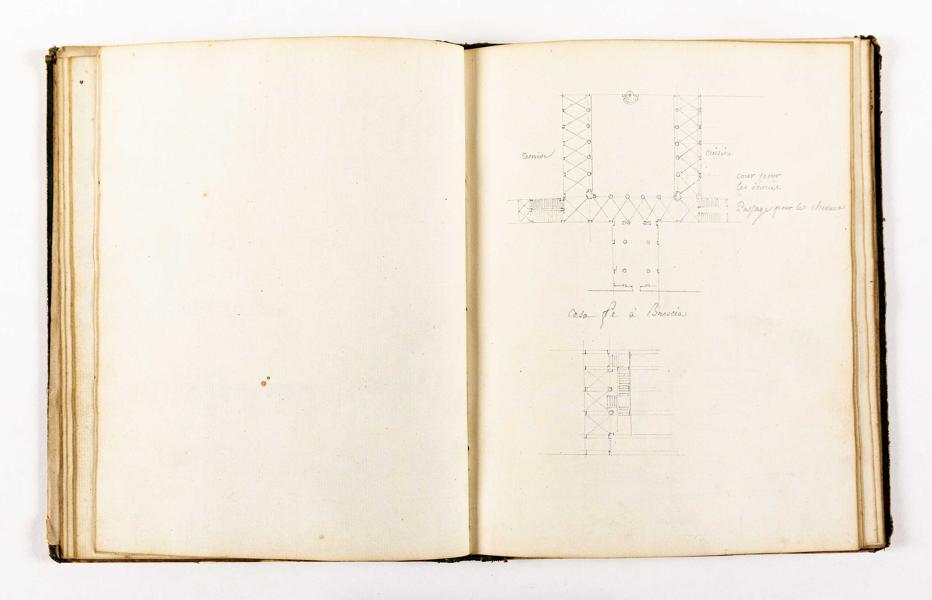 remise
cuisine
cour pour
les écuries
Passage pour les chevaux
Casa Fe à Brescia